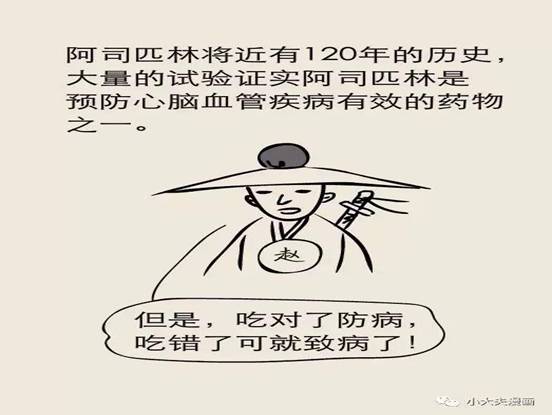 阿司匹林将近有120年的历史，
大量的试验证实阿司匹林是
预防心脑血管疾病有效的药物
之一。
赵
但是，吃对了防病，
吃错了可就致病了！
小大夫漫画